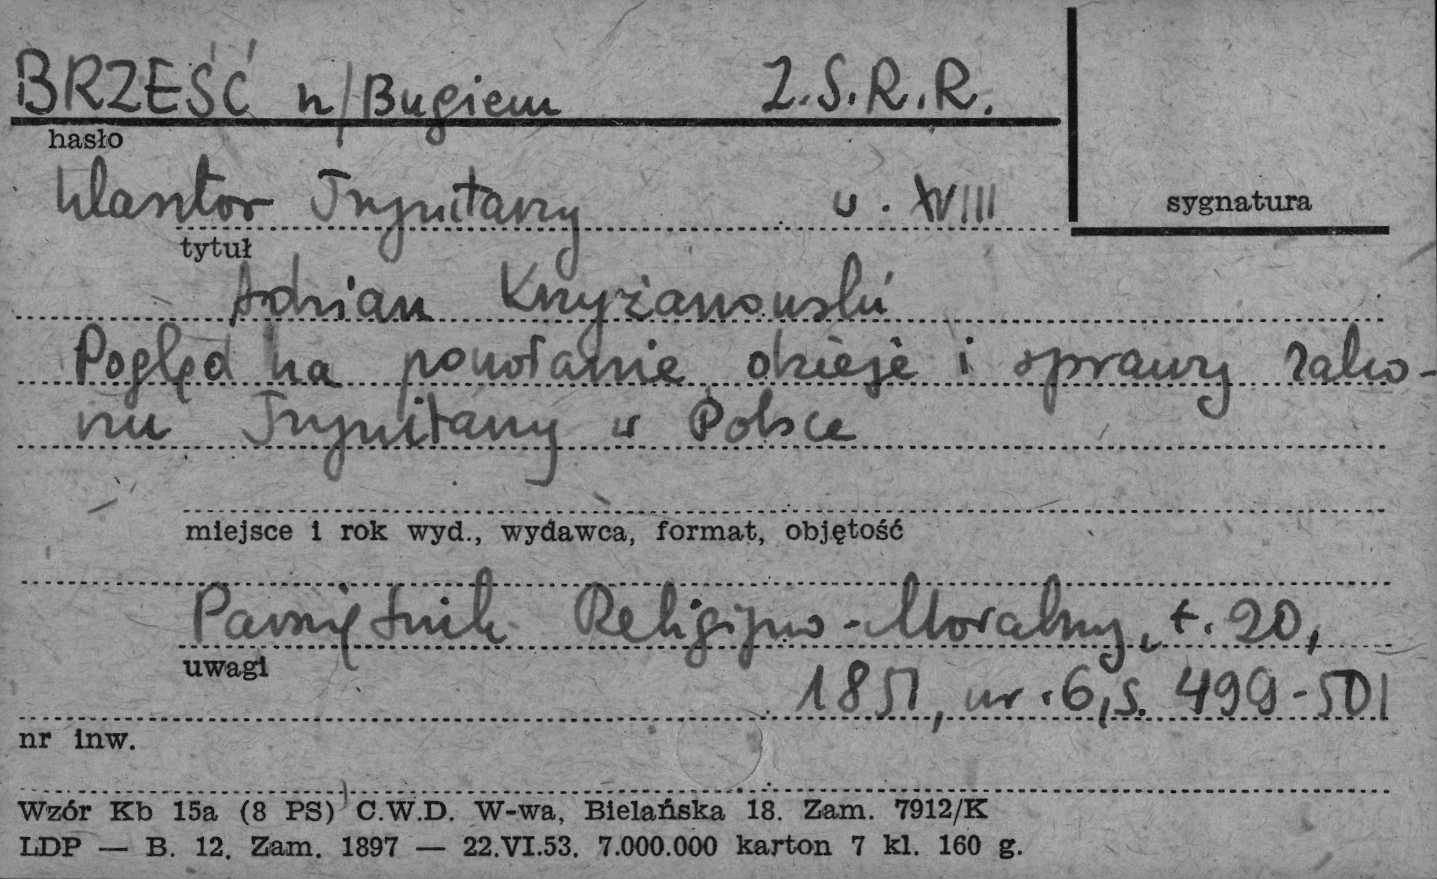 BRZEŚĆ n/Bugiem Z.S.R.R.
hasło
klasztor Trynitarzy w. XVIII
sygnatura
tytuł
Adrian Krzyżanowski
Pogląd na powołanie dzieje i sprawy zako-
nu Trynitarzy w Polsce
miejsce i rok wyd., wydawca, format, objętość
Pamiętnik Religijno-Moralny, t. 20,
uwagi
1851, nr. 6, s. 499-501
nr inw.
Wzór Kb 15a (8 PS) C.W.D. W-wa, Bielańska 18. Zam. 7912/K
LDP — B. 12. Zam. 1897 — 22.VI.53. 7.000.000 karton 7 kl. 160 g.